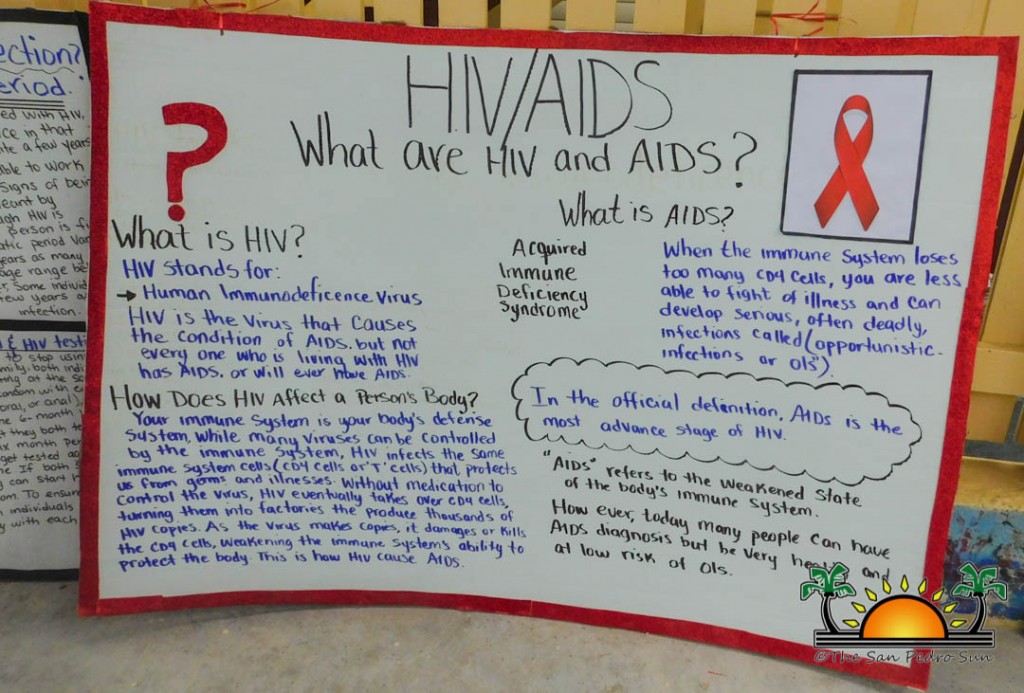 ection?
eriod.
ed with HIV,
ce in that
ite a few years
able to work
Signs of bein
leant by
ugh HIV is
person is fi
atic period var
ears as many
age range be
r, Some individ
few years a
infection.
& HIV testi
to stop usin
mily, both indi
oral, or anal),
6-month
t they both te
ix month per
get tested ag
If both
can start
om. To ensur
individuals
y with each
HIV/AIDS
?
What are HIV and AIDS?
What is HIV?
HIV stands for:
→ Human Immunodeficence Virus
HIV is the virus that causes
the condition of AIDS. but not
every one who is living with HIV
has AIDS. or will ever have AIDS.
How Does HIV Affect a Person's Body?
Your immune system is your body's defense
system, while many viruses can be controlled
by the immune system, HIV infects the same
immune system cells (CD4 cells or 'T' cells) that protects
us from germs and illnesses. Without medication to
control the virus, HIV eventually takes over CD4 cells,
turning them into factories the produce thousands of
HIV copies. As the virus makes copies, it damages or kills
the CD4 cells, weakening the immune system's ability to
protect the body This is how HIV cause AIDS.
What is AIDS?
Acquired
Immune
Deficiency
Syndrome
When the immune system loses
too many CD4 cells, you are less
able to fight of illness and can
develop serious, often deadly,
infections called (opportunistic-
infections or OIs").
In the official definition, AIDs is the
most advance stage of HIV.
"AIDS" refers to the weakened state
of the body's immune system.
How ever, today many people can have
AIDS diagnosis but be very and
at low risk of OIs.
©The San Pedro Sun